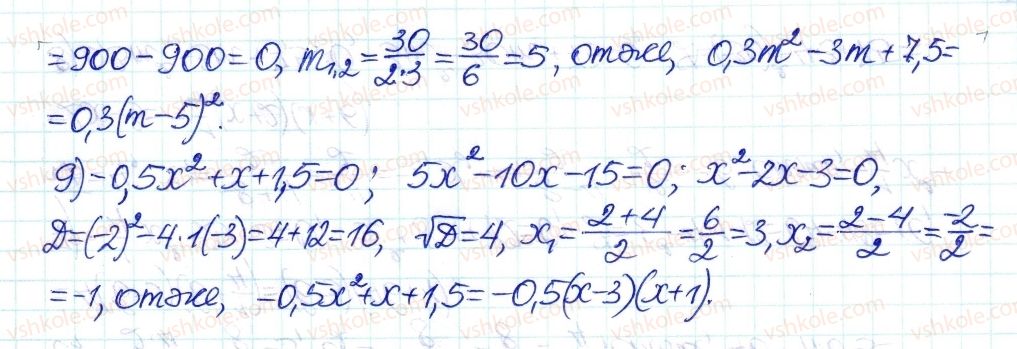 = 900 − 900 = 0, m₁,₂ = 30/(2·3) = 30/6 = 5, отже, 0,3m² − 3m + 7,5 =
= 0,3(m − 5)².
9) −0,5x² + x + 1,5 = 0; 5x² − 10x − 15 = 0; x² − 2x − 3 = 0,
D = (−2)² − 4·1(−3) = 4 + 12 = 16, √D = 4, x₁ = (2 + 4)/2 = 6/2 = 3, x₂ = (2 − 4)/2 = −2/2 =
= −1, отже, −0,5x² + x + 1,5 = −0,5(x − 3)(x + 1).